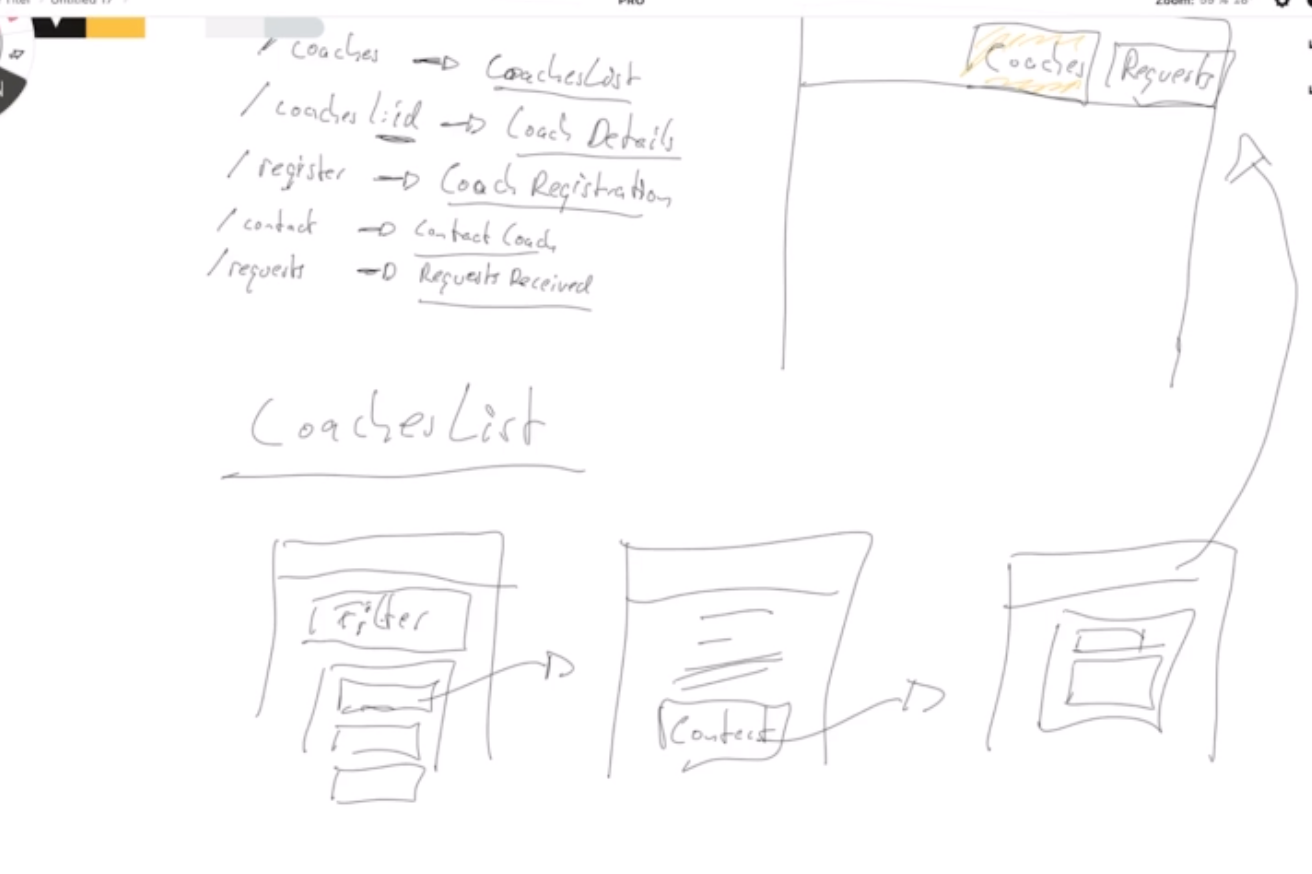 / coaches → CoachesList
/ coaches /:id → Coach Details
/ register → Coach Registration
/ contact → Contact Coach
/ requests → Requests Received
Coaches
Requests
CoachesList
Filter
Contact